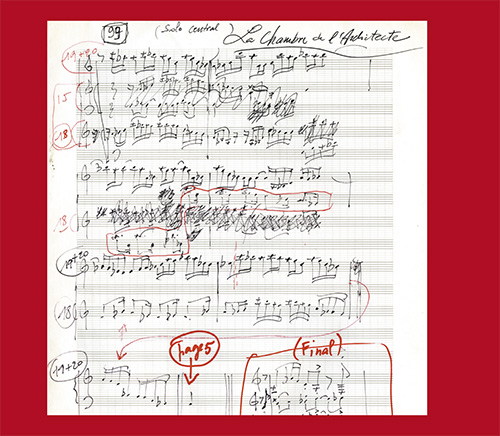 99 (Solo central) La Chambre de l'Architecte
19+20
15
18
18
19+20
18
page 5
(Final)
19+20